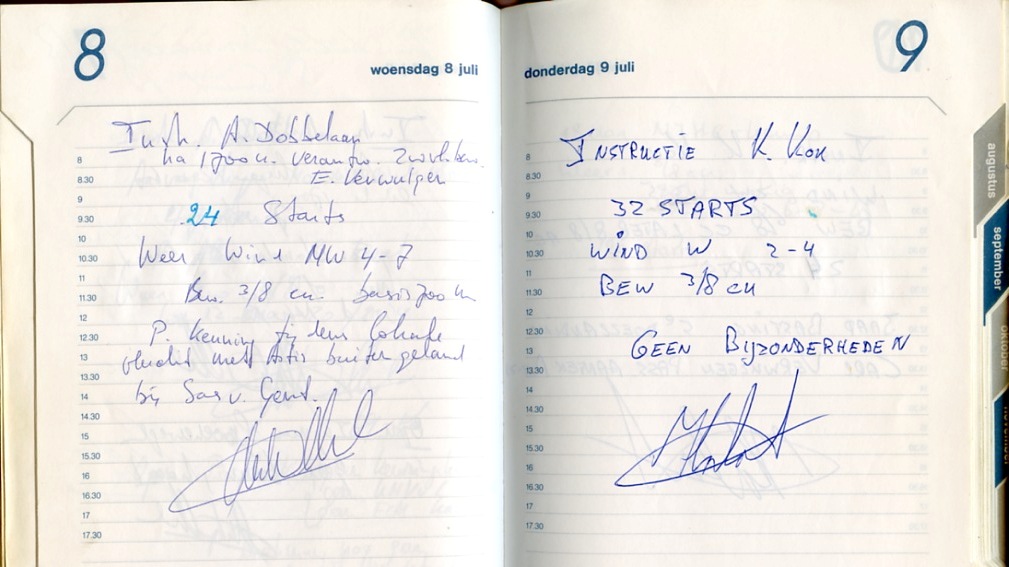 8
woensdag 8 juli
Instr. A. Dobbelaar
na 1700 u. verantw. zwevl. ben.
E. Verwulgen
24 Starts
Weer Wind NW 4-7
Bew. 3/8 cu. basis 700 m
P. Kenning tijdens lokale
vlucht met Astir buiten geland
bij Sas v. Gent.
8
8.30
9
9.30
10
10.30
11
11.30
12
12.30
13
13.30
14
14.30
15
15.30
16
16.30
17
17.30
9
donderdag 9 juli
INSTRUCTIE K. KOK
32 STARTS
WIND W 2-4
BEW 3/8 CU
GEEN BIJZONDERHEDEN
8
8.30
9
9.30
10
10.30
11
11.30
12
12.30
13
13.30
14
14.30
15
15.30
16
16.30
17
17.30
augustus
september
oktober
november